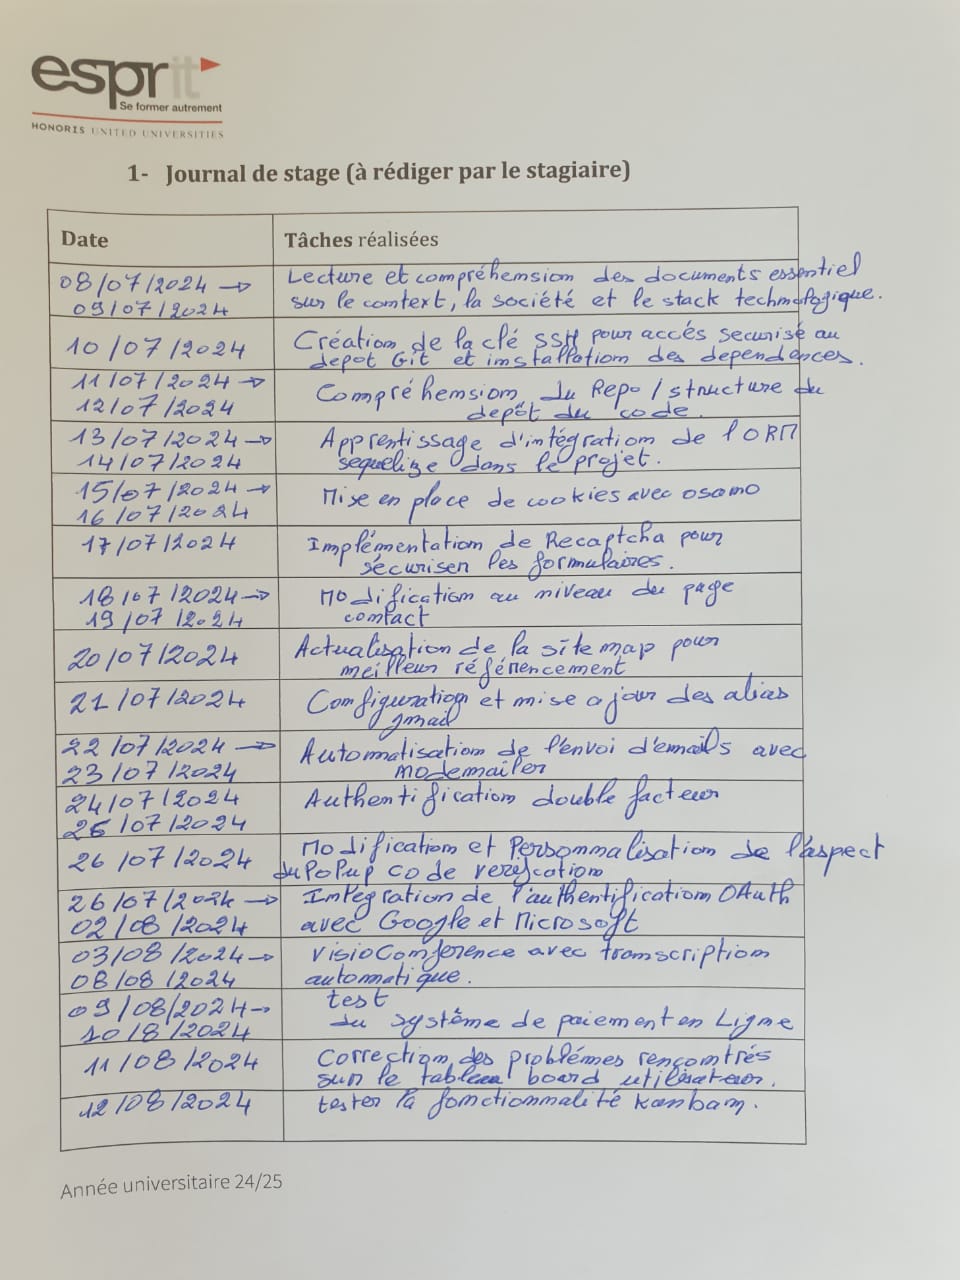 esprit
Se former autrement
HONORIS UNITED UNIVERSITIES
1- Journal de stage (à rédiger par le stagiaire)
Date
Tâches réalisées
08/07/2024 →
09/07/2024
Lecture et compréhension des documents essentiel
sur le context, la société et le stack technologique.
10/07/2024
Création de la clé SSH pour accés securisé au
depot Git et installation des dependences.
11/07/2024 →
12/07/2024
Compréhension du Repo / structure du
depôt du code.
13/07/2024 →
14/07/2024
Apprentissage d'intégration de l'ORM
sequelize dans le projet.
15/07/2024 →
16/07/2024
Mise en place de cookies avec osano
17/07/2024
Implémentation de Recaptcha pour
sécuriser les formulaires.
18/07/2024 →
19/07/2024
Modification au niveau du page
contact
20/07/2024
Actualisation de la site map pour
meilleur référencement
21/07/2024
Configuration et mise a jour des alias
gmail
22/07/2024 →
23/07/2024
Automatisation de l'envoi d'emails avec
nodemailer
24/07/2024
25/07/2024
Authentification double facteur
26/07/2024
Modification et Personnalisation de l'aspect
du PoPup code verification
26/07/2024 →
02/08/2024
Intégration de l'authentification OAuth
avec Google et Microsoft
03/08/2024 →
08/08/2024
VisioConference avec transcription
automatique.
09/08/2024 →
10/8/2024
test
du système de paiement en Ligne
11/08/2024
Correction des problémes rencontrés
sur le tableau board utilisateur.
12/08/2024
tester la fonctionnalité kanban.
Année universitaire 24/25